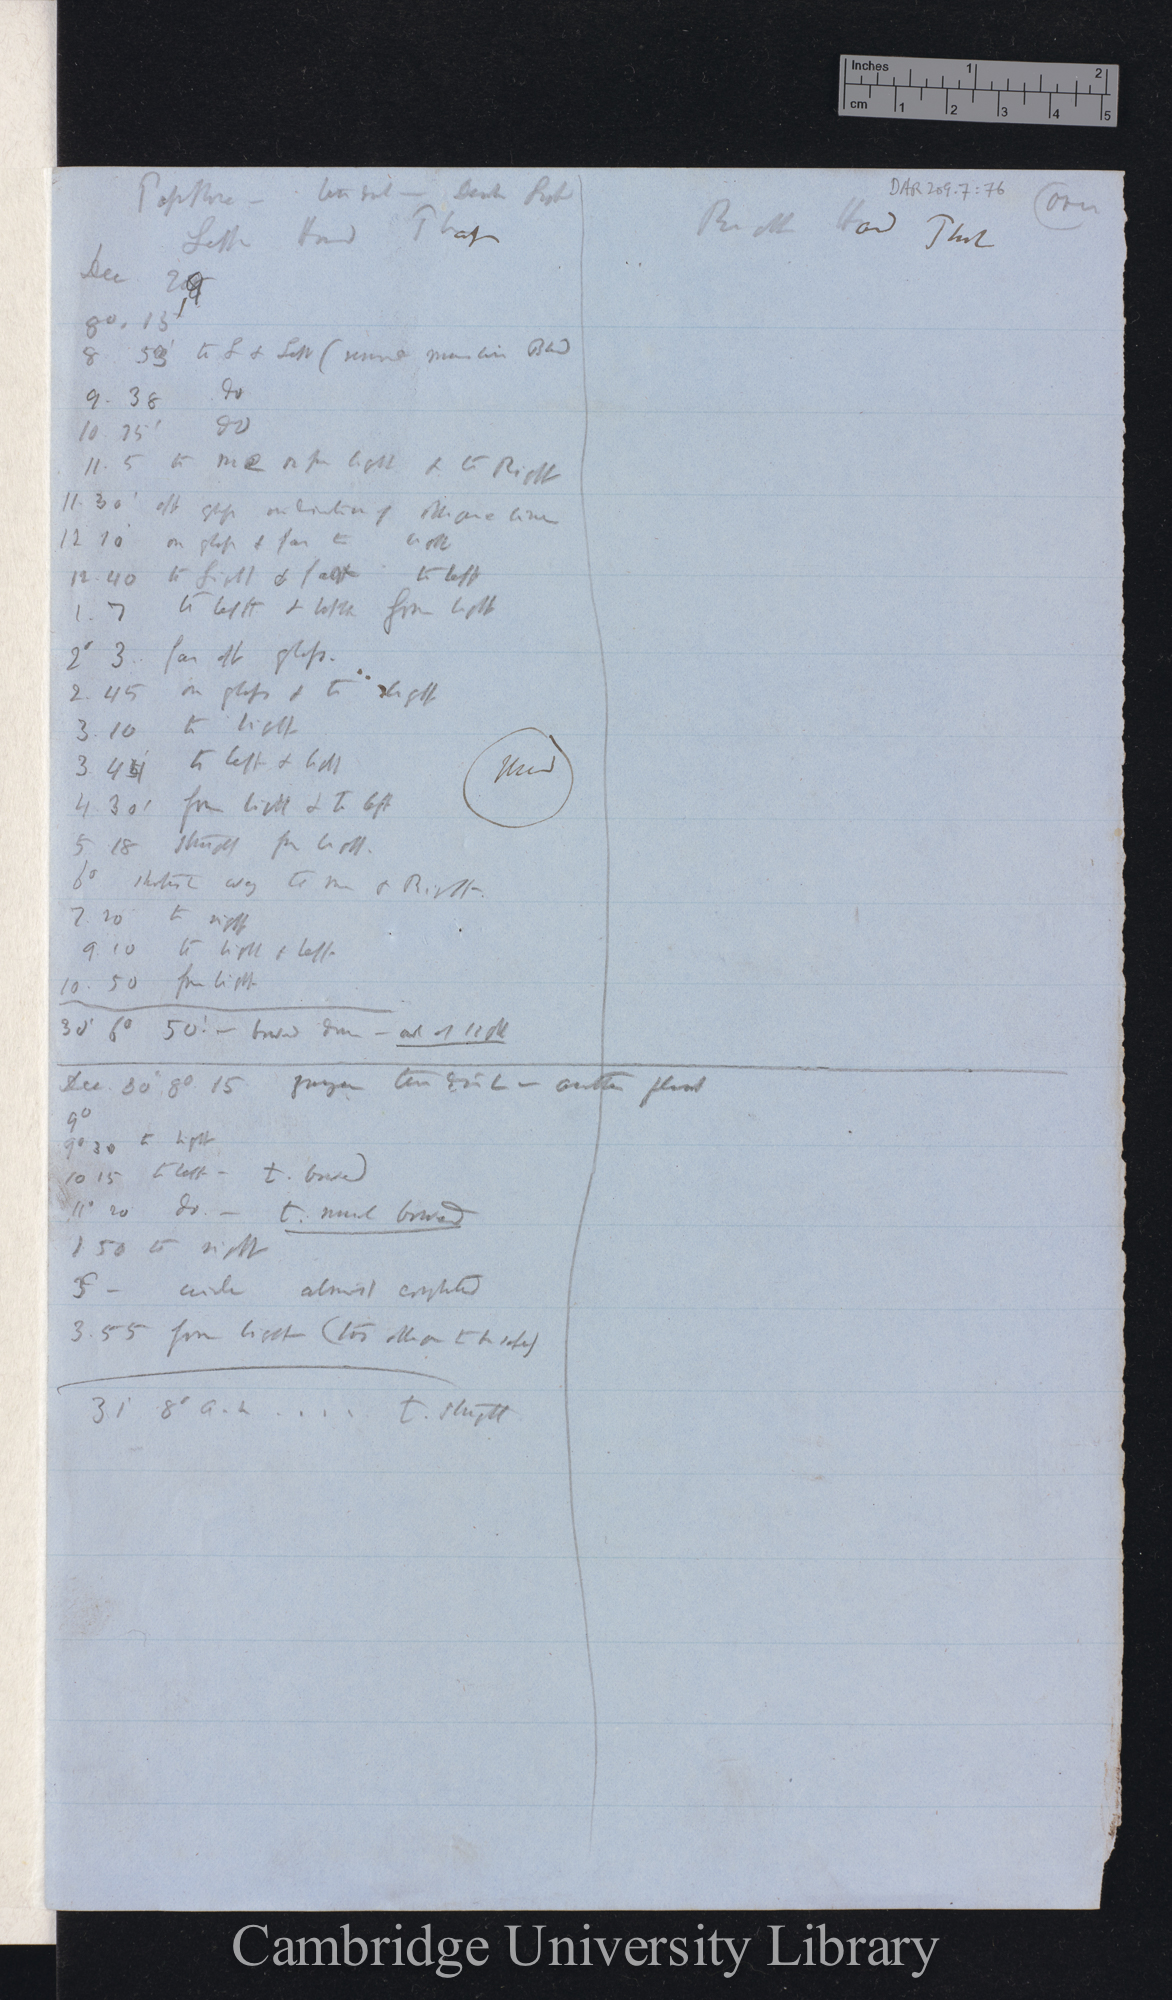 Inches 1 2
cm 1 2 3 4 5
DAR 209.7:76
over
Passiflora — tendril —
Left Hand
Right Hand
Dec 29
8° . 15'
8 53' to L & Left (
9. 38 do
10 25' do
11. 5 to me or from light & to Right
11. 30' off glass in direction of oblique line
12 10' on glass & far to light
12. 40 to light & to left
1. 7 to left & from light
2° 3 far off glass.
2. 45 on glass & to light
3. 10 to light
3 45' to left & light
Used
4. 30' from light & to left
5 18 straight from light.
6° way to me & Right.
7 20 to right
9. 10 to light & left
10. 50 from light
30' 6° 50' — bowed down — out of light
Dec. 30' 8° 15 younger tendril — another plant
9°
9° 30 to light
10 15 to left — t. bowed
11° 20 do. — t. much bowed
1 50 to right
3 — circle almost completed
3. 55 from light
31' 8° a.m . . . . t. straight
Cambridge University Library